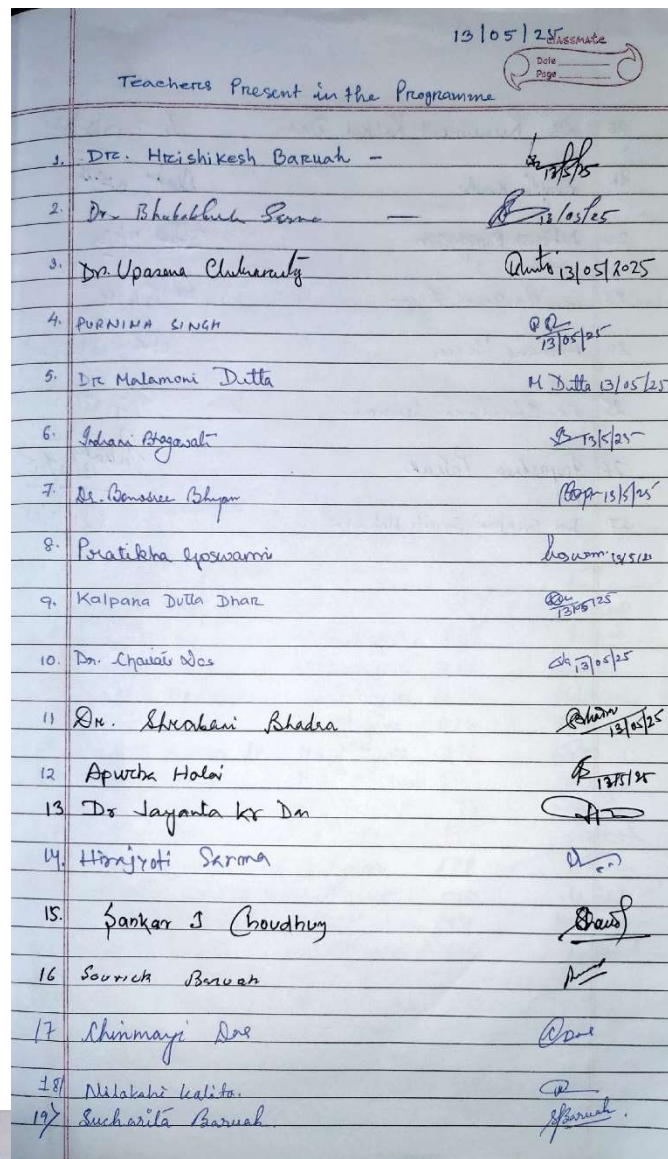 13/05/25
classmate
Date
Page
Teachers Present in the Programme
1. Dr. Hrishikesh Baruah - 13/5/25
2. Dr. Sarma — 13/05/25
3. Dr. Upasana Chakravarty 13/05/2025
4. PURNIMA SINGH 13/05/25
5. Dr Malamoni Dutta M Dutta 13/05/25
6. Indrani Bhagawati 13/5/25
7. Dr. Banasree Bhuyan 13/5/25
8. Pratiksha Goswami Goswami
9. Kalpana Dutta Dhar 13/05/25
10. Dr. Das 13/05/25
11 Dr. Shrabani Bhadra 13/05/25
12 Apurba Haloi 13/5/25
13 Dr Jayanta kr Das
14. Hirajyoti Sarma
15. Sankar J Choudhury
16 Sourick Baruah
17 Chinmayi Das
18) Nilakshi Kalita.
19) Sucharita Baruah. SBaruah.